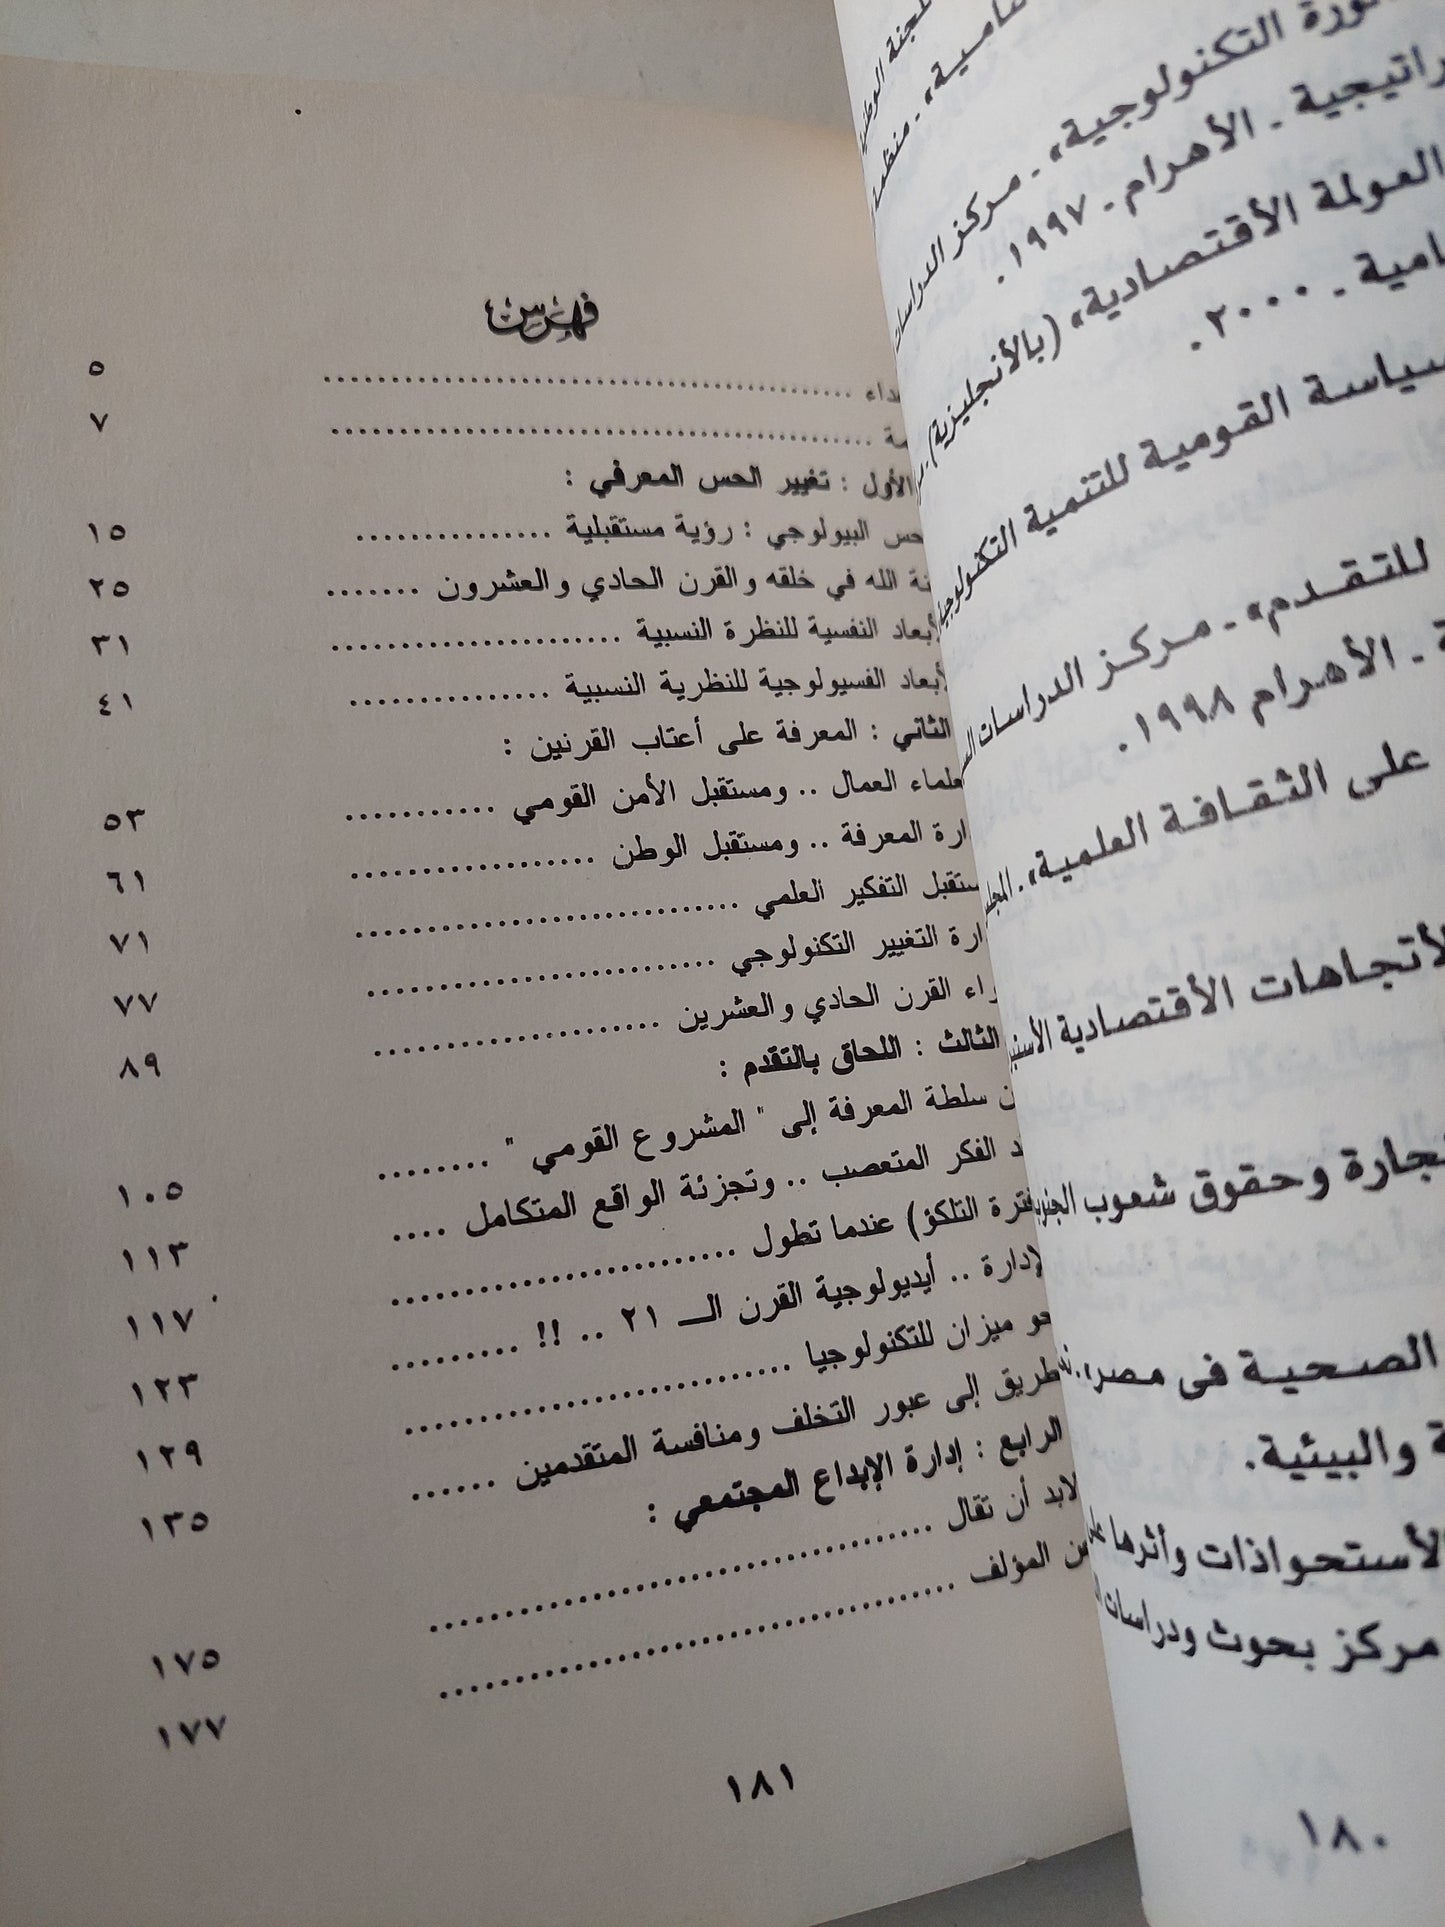 فهرس
داء .......... ٥
مة .......... ٧
الأول : تغيير الحس المعرفي :
حس البيولوجي : رؤية مستقبلية .......... ١٥
نة الله في خلقه والقرن الحادي والعشرون .......... ٢٥
لأبعاد النفسية للنظرة النسبية .......... ٣١
لأبعاد الفسيولوجية للنظرية النسبية .......... ٤١
الثاني : المعرفة على أعتاب القرنين :
علماء العمال .. ومستقبل الأمن القومي .......... ٥٣
ارة المعرفة .. ومستقبل الوطن .......... ٦١
ستقبل التفكير العلمي .......... ٧١
ارة التغيير التكنولوجي .......... ٧٧
راء القرن الحادي والعشرين .......... ٨٩
الثالث : اللحاق بالتقدم :
ن سلطة المعرفة إلى " المشروع القومي " .......... ١٠٥
د الفكر المتعصب .. وتجزئة الواقع المتكامل .... ١١٣
فترة التلكؤ) عندما تطول .......... ١١٧
لإدارة .. أيديولوجية القرن الـ ٢١ .. !! .......... ١٢٣
حو ميزان للتكنولوجيا .......... ١٢٩
طريق إلى عبور التخلف ومنافسة المتقدمين ...... ١٣٥
الرابع : إدارة الإبداع المجتمعي :
لابد أن تقال .......... ١٧٥
عن المؤلف .......... ١٧٧
١٨١
لجنة الوطنية
نامية» - منظمة
ثورة التكنولوجية» - مركز الدراسات
راتيجية - الأهرام - ١٩٩٧.
العولمة الأقتصادية» (بالأنجليزية).
امية - ٢٠٠٠.
سياسة القومية للتنمية التكنولوجية
للتقدم» - مركز الدراسات
ة - الأهرام ١٩٩٨.
على الثقافة العلمية» - المجلس
لأتجاهات الأقتصادية
تجارة وحقوق شعوب الجنوب
الصحية فى مصر».
ة والبيئية.
لأستحواذات وأثرها على
مركز بحوث ودراسات
١٨٠